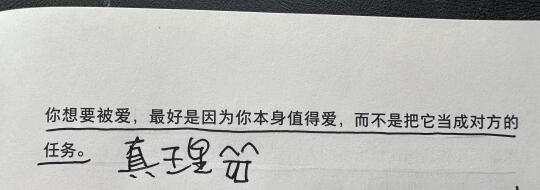 你想要被爱，最好是因为你本身值得爱，而不是把它当成对方的
任务。 真理